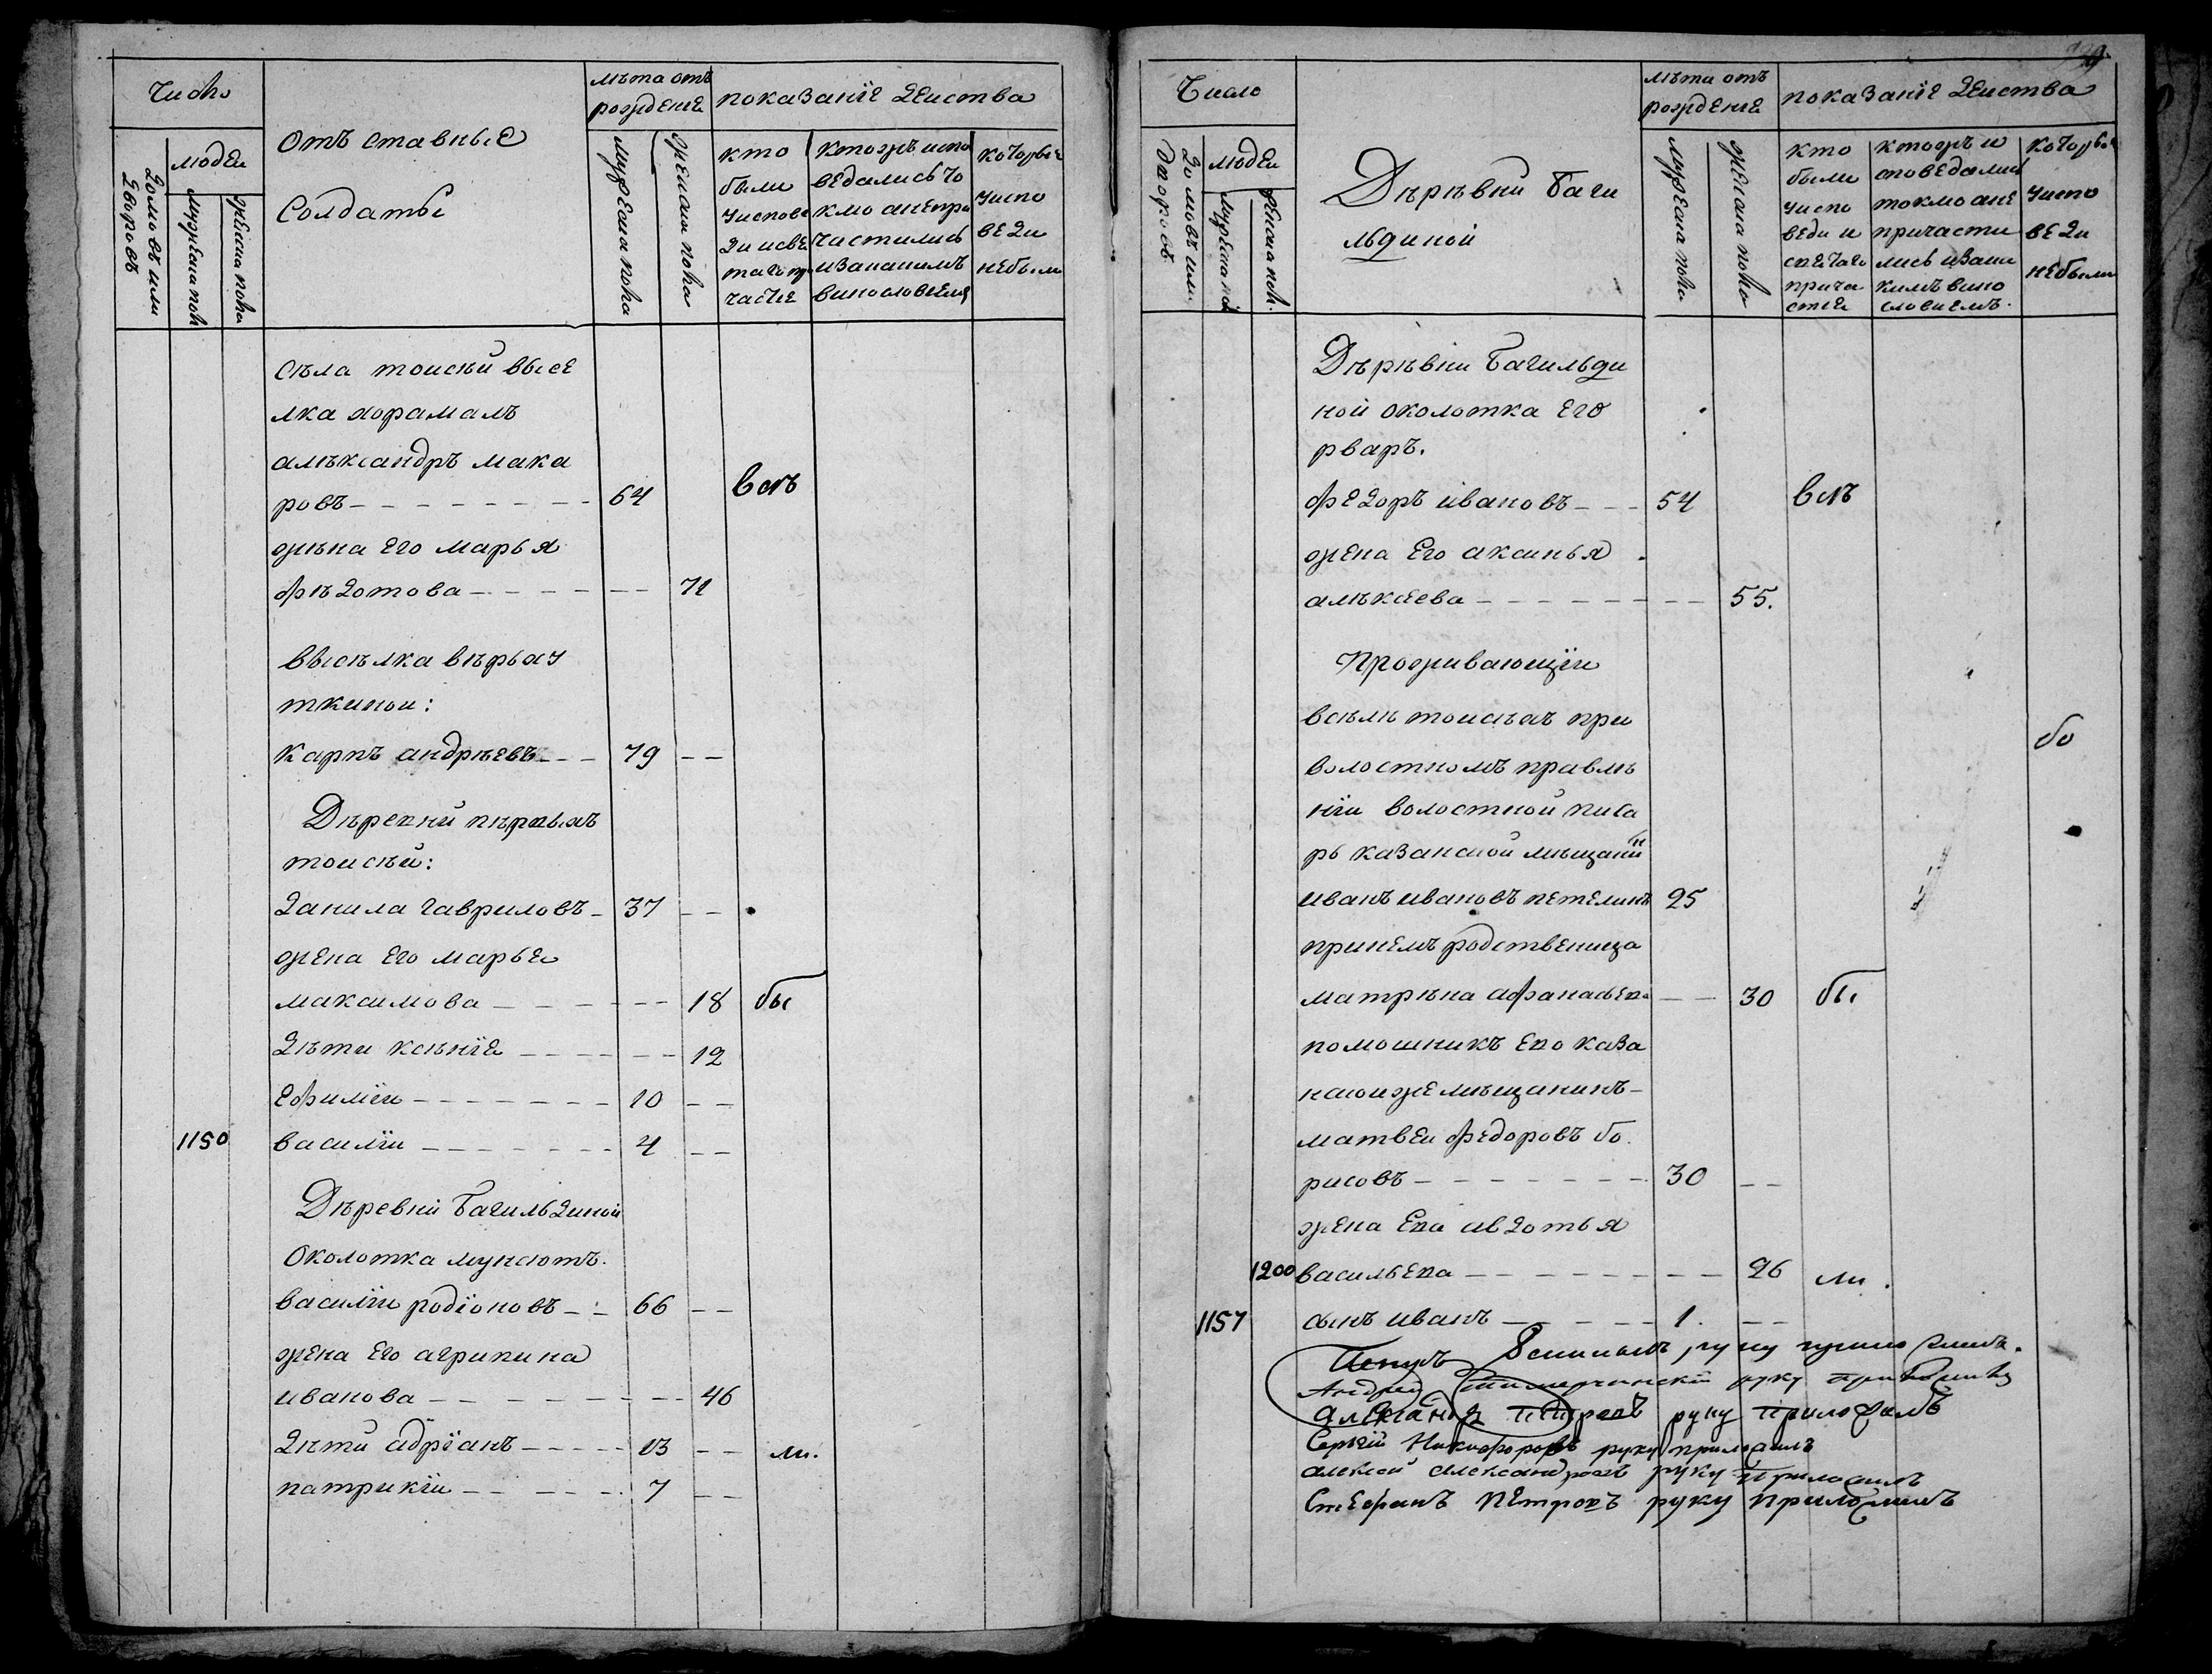 Число
Отъ ставные
Солдаты
лѣта отъ
рожденія
показаніе деиства
домовъ или
дворовъ
людеи
мужеска пол
женска пола
мужеска пола
женска пола
кто
были
уиспове
ди исвѣ
таго пр
частіе
ктожъ испо
ведались то
кмо анепри
частились
изакакимъ
винословіемъ
которые
уиспо
веди
небыли
сѣла тоисѣй высе
лка хорамалъ
алѣксандръ мака
ровъ 64
всѣ
жѣна его марья
фѣдотова 71
высѣлка
ткинои:
карпъ андрѣевъ 79
Дѣревни пѣрвыхъ
тоисѣй:
данила гавриловъ 37
жена его марье
максимова 18 бы
дѣти ксѣніе 12
ефиміи 10
1150 василіи 4
Дѣревни Багильдиной
Околотка мунсютъ.
василіи родіоновъ 66
жена его агрипина
иванова 46
дѣти адріанъ 13 ли.
патрикіи 7
Число
Дѣрѣвни Баги
льдиной
лѣта отъ
рожденіе
показаніе деиства
домовъ или
дворовъ
людеи
мужеска пол
женска пол.
мужеска пола
женска пола
кто
были
уиспо
веди и
свѣтаго
прича
стіи
ктожъ и
споведались
токмо ане
причасти
лись изака
кимъ вино
словіемъ.
которые
уиспо
веди
небыли
Дѣрѣвни Багильди
ной околотка Его
рваръ.
федоръ ивановъ 54 всѣ
жена Его аксинья
алѣксѣева 55.
проживающіи
всѣлѣ тоисѣхъ при
бо
волостномъ правлѣ
ніи волостной писа
рь казанской мѣщанин
иванъ ивановъ петелинъ 25
принемъ родственица
матрѣна афанасьева 30 бы
помошникъ ево каза
нскоижемѣщанинъ
матвеи федоровъ бо
рисовъ 30
жена Ева авдотья
1200 васильева 26 ли.
1157 сынъ иванъ 1.
руку приложилъ.
Андрей руку приложилъ
Александръ Петровъ руку приложилъ
Сергій Никифоровъ руку приложилъ
алексей александровъ руку приложилъ
Стефанъ Петровъ руку приложилъ